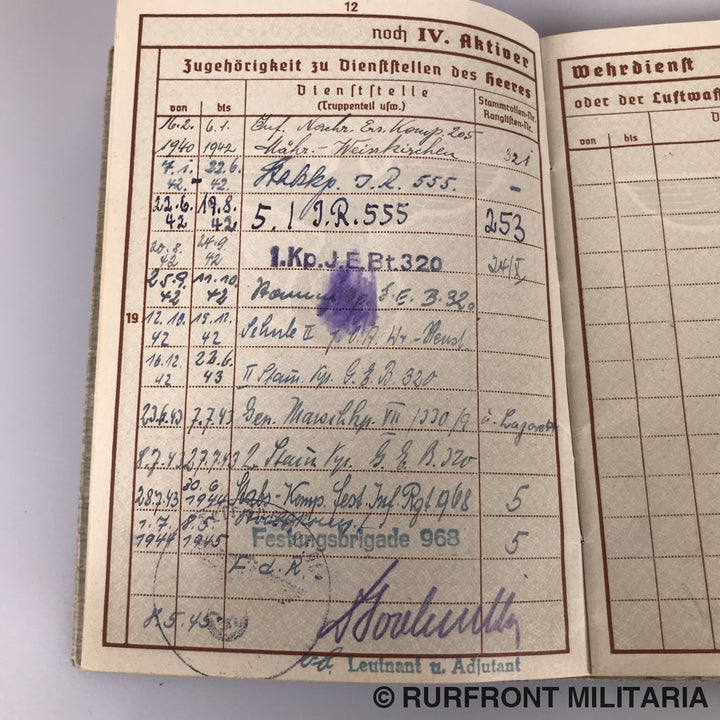 12
noch IV. Aktiver
Zugehörigkeit zu Dienststellen des Heeres
von bis Dienststelle (Truppenteil usw.) Stammrollen-Nr. Ranglisten-Nr.
16.2. 6.1. Inf. Nachr. Ers. Komp. 205
1940 1942 Mähr.-Weisskirchen 321
7.1. 22.6.
42. - 42. Stabskp. I.R. 555. -
22.6. 19.8.
42 42 5./ I.R. 555 253
20.8. 24.9
42 42 1.Kp.J.E.Bt.320 24/X
25.9. 11.10.
42 42 G.E.B. 320
19 12.10. 15.12.
42 42 Schule II
16.12. 22.6.
42 43 II Stam. Kp. G.E.B 320
23.6.43 7.7.43 Gen. Marschkp. VII 1330/9 u. Lazarett
8.7.43 27.7.43 2. Stam Kp. G.E.B. 320
28.7.43 30.6. 1944 Stabs-Komp. Fest. Inf. Rgt 968 5
1.7. 8.5.
1944 1945 Festungsbrigade 968 5
F.d.R.
8.5.45
Leutnant u. Adjutant
Wehrdienst
oder der Luftwaf
von bis D
© RURFRONT MILITARIA